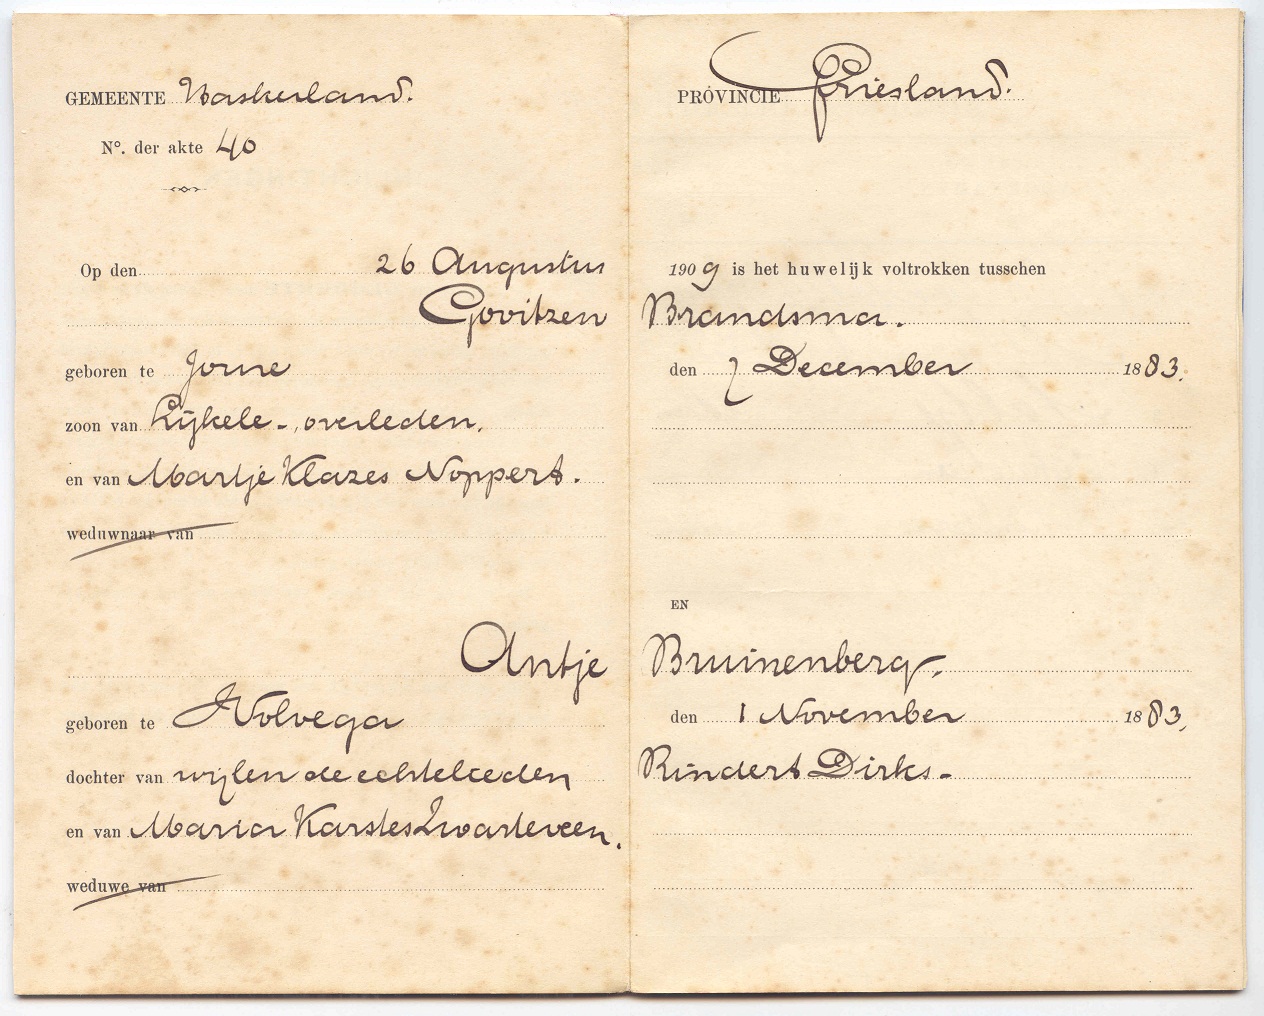 GEMEENTE Haskerland. PROVINCIE Friesland.
No. der akte 40
Op den 26 Augustus 1909 is het huwelijk voltrokken tusschen
Govitzen Brandsma.
geboren te Joure den 7 December 1883.
zoon van Rijkele -, overleden.
en van Martje Klazes Noppert.
weduwnaar van
EN
Antje Bruinenberg.
geboren te Wolvega den 1 November 1883.
dochter van wijlen de echtelieden Rindert Dirks -
en van Maria Karstes Zwarteveen.
weduwe van